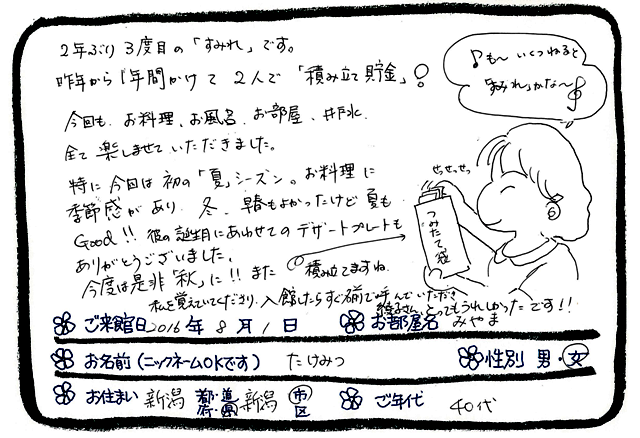 2年ぶり3度目の「すみれ」です。
昨年から1年間かけて2人で「積み立て貯金」!
今回も、お料理、お風呂、お部屋、井戸水、
全て楽しませていただきました。
特に今回は初の「夏」シーズン。お料理に
季節感があり、冬、早春もよかったけど夏も
Good!! 彼の誕生月にあわせてのデザートプレートも
ありがとうございました。
今度は是非「秋」に!! また
積み立てますね。
私を覚えていてくださり、入館したらすぐ名前で呼んでいただき
とってもうれしかったです!!
♪も〜いくつねると
「すみれ」かな〜
せっせっせっ
つみたて袋
ご来館日 2016年 8月 1日 お部屋名 みやま
お名前(ニックネームOKです) たけみつ 性別 男・女
お住まい 新潟 都・道 府・県 新潟 市 区 ご年代 40代